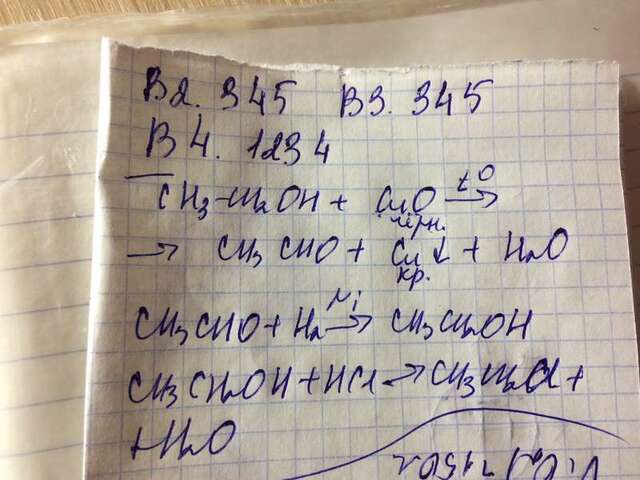 В2. 345 В3. 345
В4. 1234
CH3-CH2OH + CuO t0→
чёрн.
→ CH3CHO + Cu↓ + H2O
кр.
CH3CHO + H2 Ni→ CH3CH2OH
CH3CH2OH + HCl → CH3CH2Cl +
+ H2O